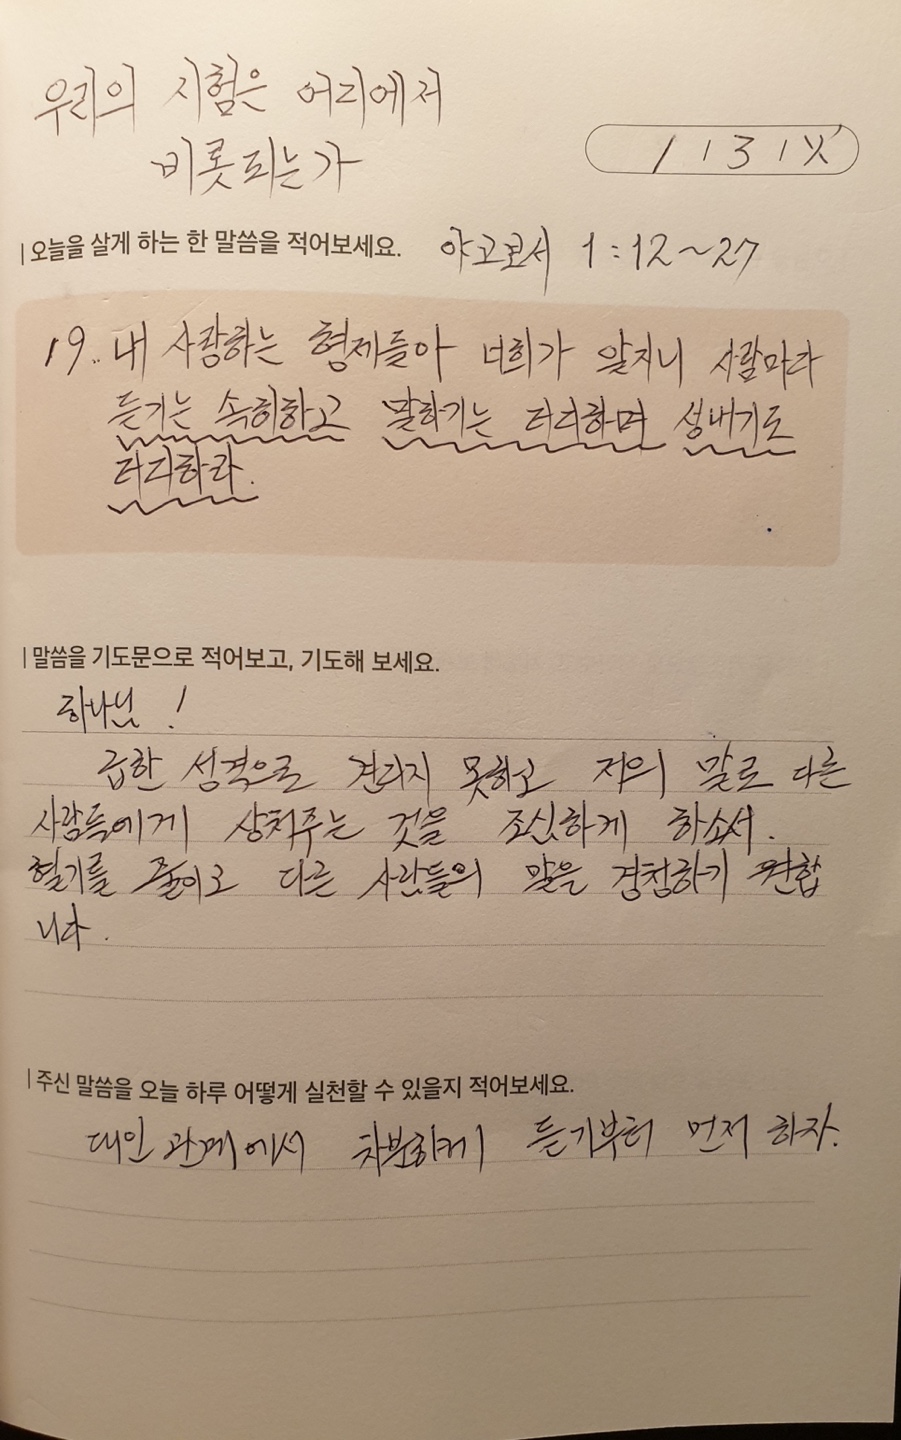 우리의 시험은 어디에서
비롯되는가
1131
오늘을 살게 하는 한 말씀을 적어보세요. 야고보서 1:12~27
19. 내 사랑하는 형제들아 너희가 알지니 사람마다
듣기는 속히하고 말하기는 더디하며 성내기도
더디하라.
말씀을 기도문으로 적어보고, 기도해 보세요.
하나님!
급한 성격으로 견디지 못하고 저의 말로 다른
사람들에게 상처주는 것을 조심하게 하소서.
혈기를 줄이고 다른 사람들의 말을 경청하기 원합
니다.
주신 말씀을 오늘 하루 어떻게 실천할 수 있을지 적어보세요.
대인 관계에서 차분하게 듣기부터 먼저 하자.